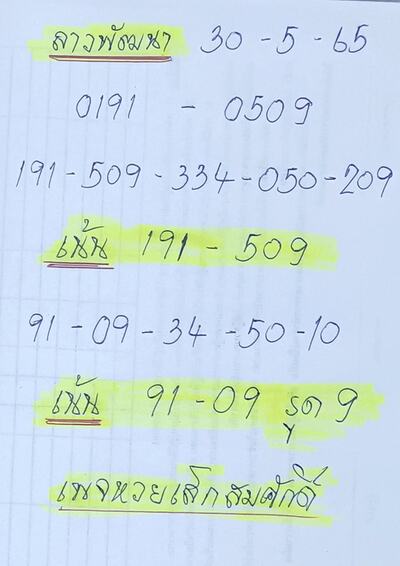 ลาวพัฒนา 30-5-65
0191 - 0509
191-509-334-050-209
เน้น 191-509
91-09-34-50-10
เน้น 91-09 รูด 9
เพจหวยเล็กสมศักดิ์